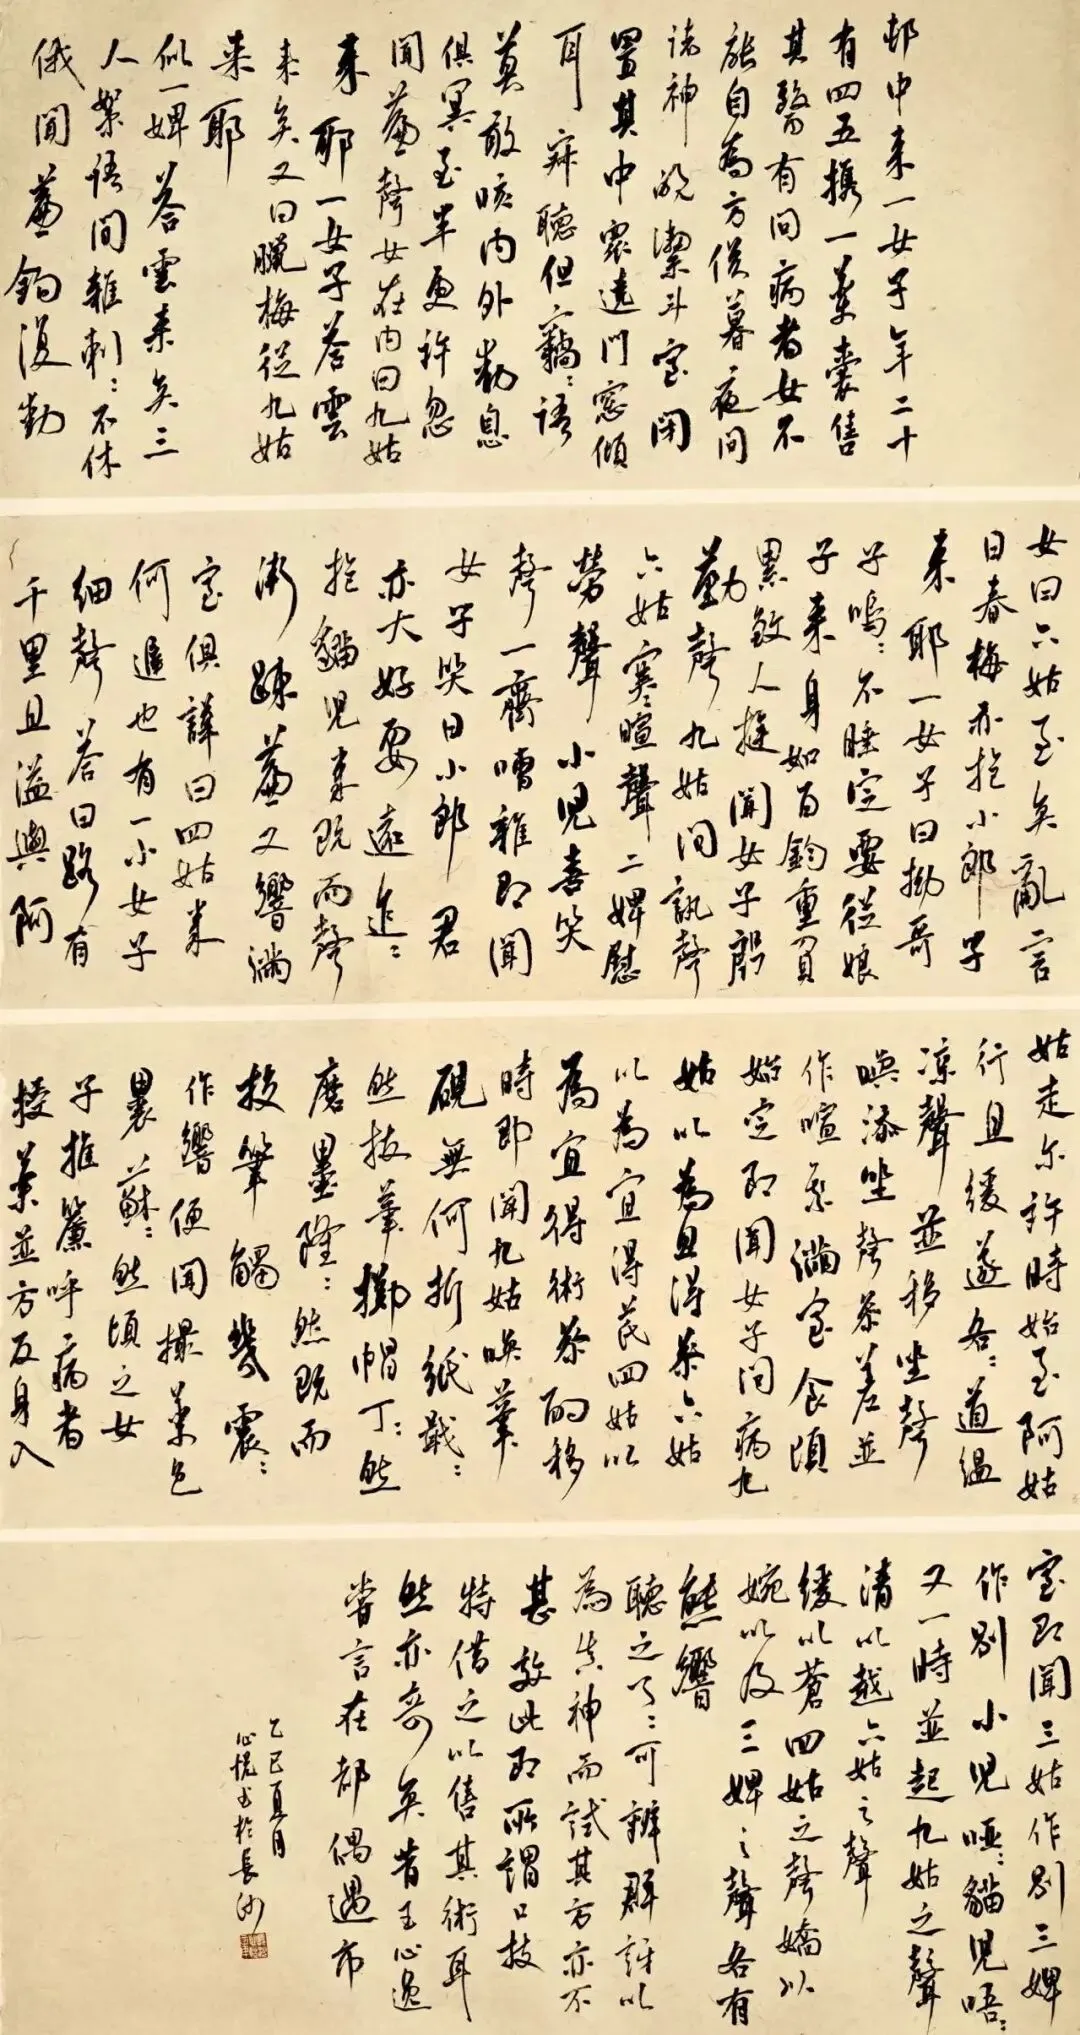 邨中来一女子年二十
有四五攜一藥囊售
其醫有问病者女不
能自為方俟暮夜问
诸神晚潔斗室闭
置其中眾遶門窓傾
耳寂聽但竊〻语
莫敢咳内外動息
俱冥至半更許忽
聞簾聲女在内曰九姑
来耶一女子答雲
来矣又曰臘梅從九姑
来耶
似一婢答雲来矣三
人絮语间雜刺〻不休
俄聞簾鉤復動
女曰六姑至矣亂言
曰春梅亦抱小郎子
来耶一女子曰拗哥
子嗚〻不睡定要從娘
子来身如百鈞重負
累煞人旋聞女子殷
勤聲九姑问訊聲
六姑寒暄聲二婢慰
勞聲小児喜笑
聲一齊嘈雜即聞
女子笑曰小郎君
亦大好耍遠迢〻
抱貓児来既而聲
漸疎簾又響满
室俱譁曰四姑来
何遲也有一小女子
细聲答曰路有
千里且溢與阿
姑走尔許時始至阿姑
行且缓遂各〻道温
凉聲並移坐聲
唤添坐聲參差並
作喧繁满室食頃
始定即聞女子问病九
姑以為宜得參六姑
以為宜得芪四姑以
為宜得術參酌移
時即聞九姑唤筆
硯無何折纸戢〻
然拔筆擲帽丁〻然
磨墨隆〻然既而
投筆觸幾震〻
作響便聞撮藥包
裹蘇〻然頃之女
子推簾呼病者
授藥並方反身入
室即聞三姑作别三婢
作别小児啞〻貓児唔〻
又一時並起九姑之聲
清以越六姑之聲
缓以蒼四姑之聲嬌以
婉以及三婢之聲各有
態響
聽之了〻可辨群訝以
為真神而試其方亦不
甚效此即所謂口技
特借之以售其術耳
然亦奇矣昔王心逸
嘗言在都偶過市
乙巳夏月
心悦书於長沙